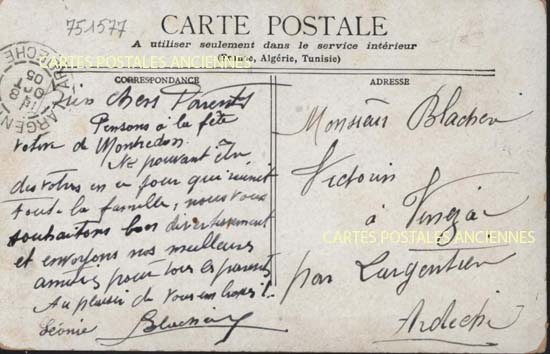 751577
CARTE POSTALE
A utiliser seulement dans le service intérieur
(France, Algérie, Tunisie)
CARTES POSTALES ANCIENNES
CORRESPONDANCE
ADRESSE
chers Parents
Pensons à la fête
votive de Montredon
Ne pouvant être
des vôtres en ce jour qui réunit
toute la famille, nous vous
souhaitons bon divertissement
et envoyons nos meilleurs
amitiés pour tous les parents
Au plaisir de vous
Léonie
Monsieur Blachère
Victorin
à Vinezac
CARTES POSTALES ANCIENNES
par Largentière
Ardèche